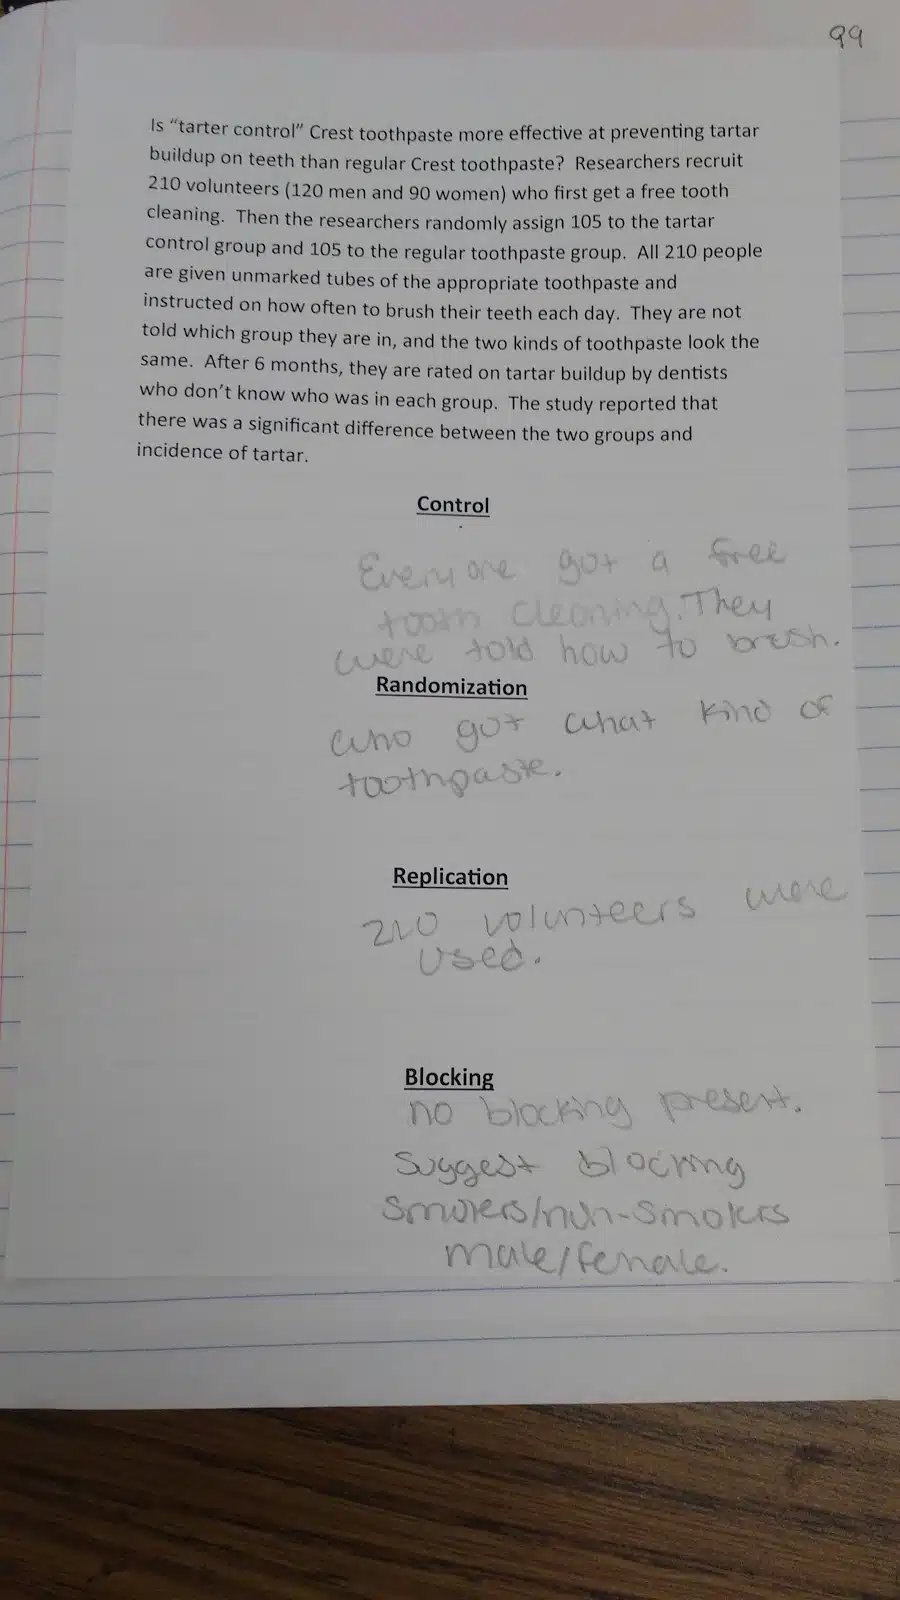 99
Is “tarter control” Crest toothpaste more effective at preventing tartar
buildup on teeth than regular Crest toothpaste?  Researchers recruit
210 volunteers (120 men and 90 women) who first get a free tooth
cleaning.  Then the researchers randomly assign 105 to the tartar
control group and 105 to the regular toothpaste group.  All 210 people
are given unmarked tubes of the appropriate toothpaste and
instructed on how often to brush their teeth each day.  They are not
told which group they are in, and the two kinds of toothpaste look the
same.  After 6 months, they are rated on tartar buildup by dentists
who don’t know who was in each group.  The study reported that
there was a significant difference between the two groups and
incidence of tartar.
Control
Everyone got a free
tooth cleaning. They
were told how to brush.
Randomization
who got what kind of
toothpaste.
Replication
210 volunteers were
used.
Blocking
no blocking present.
Suggest blocking
smokers/non-smokers
male/female.